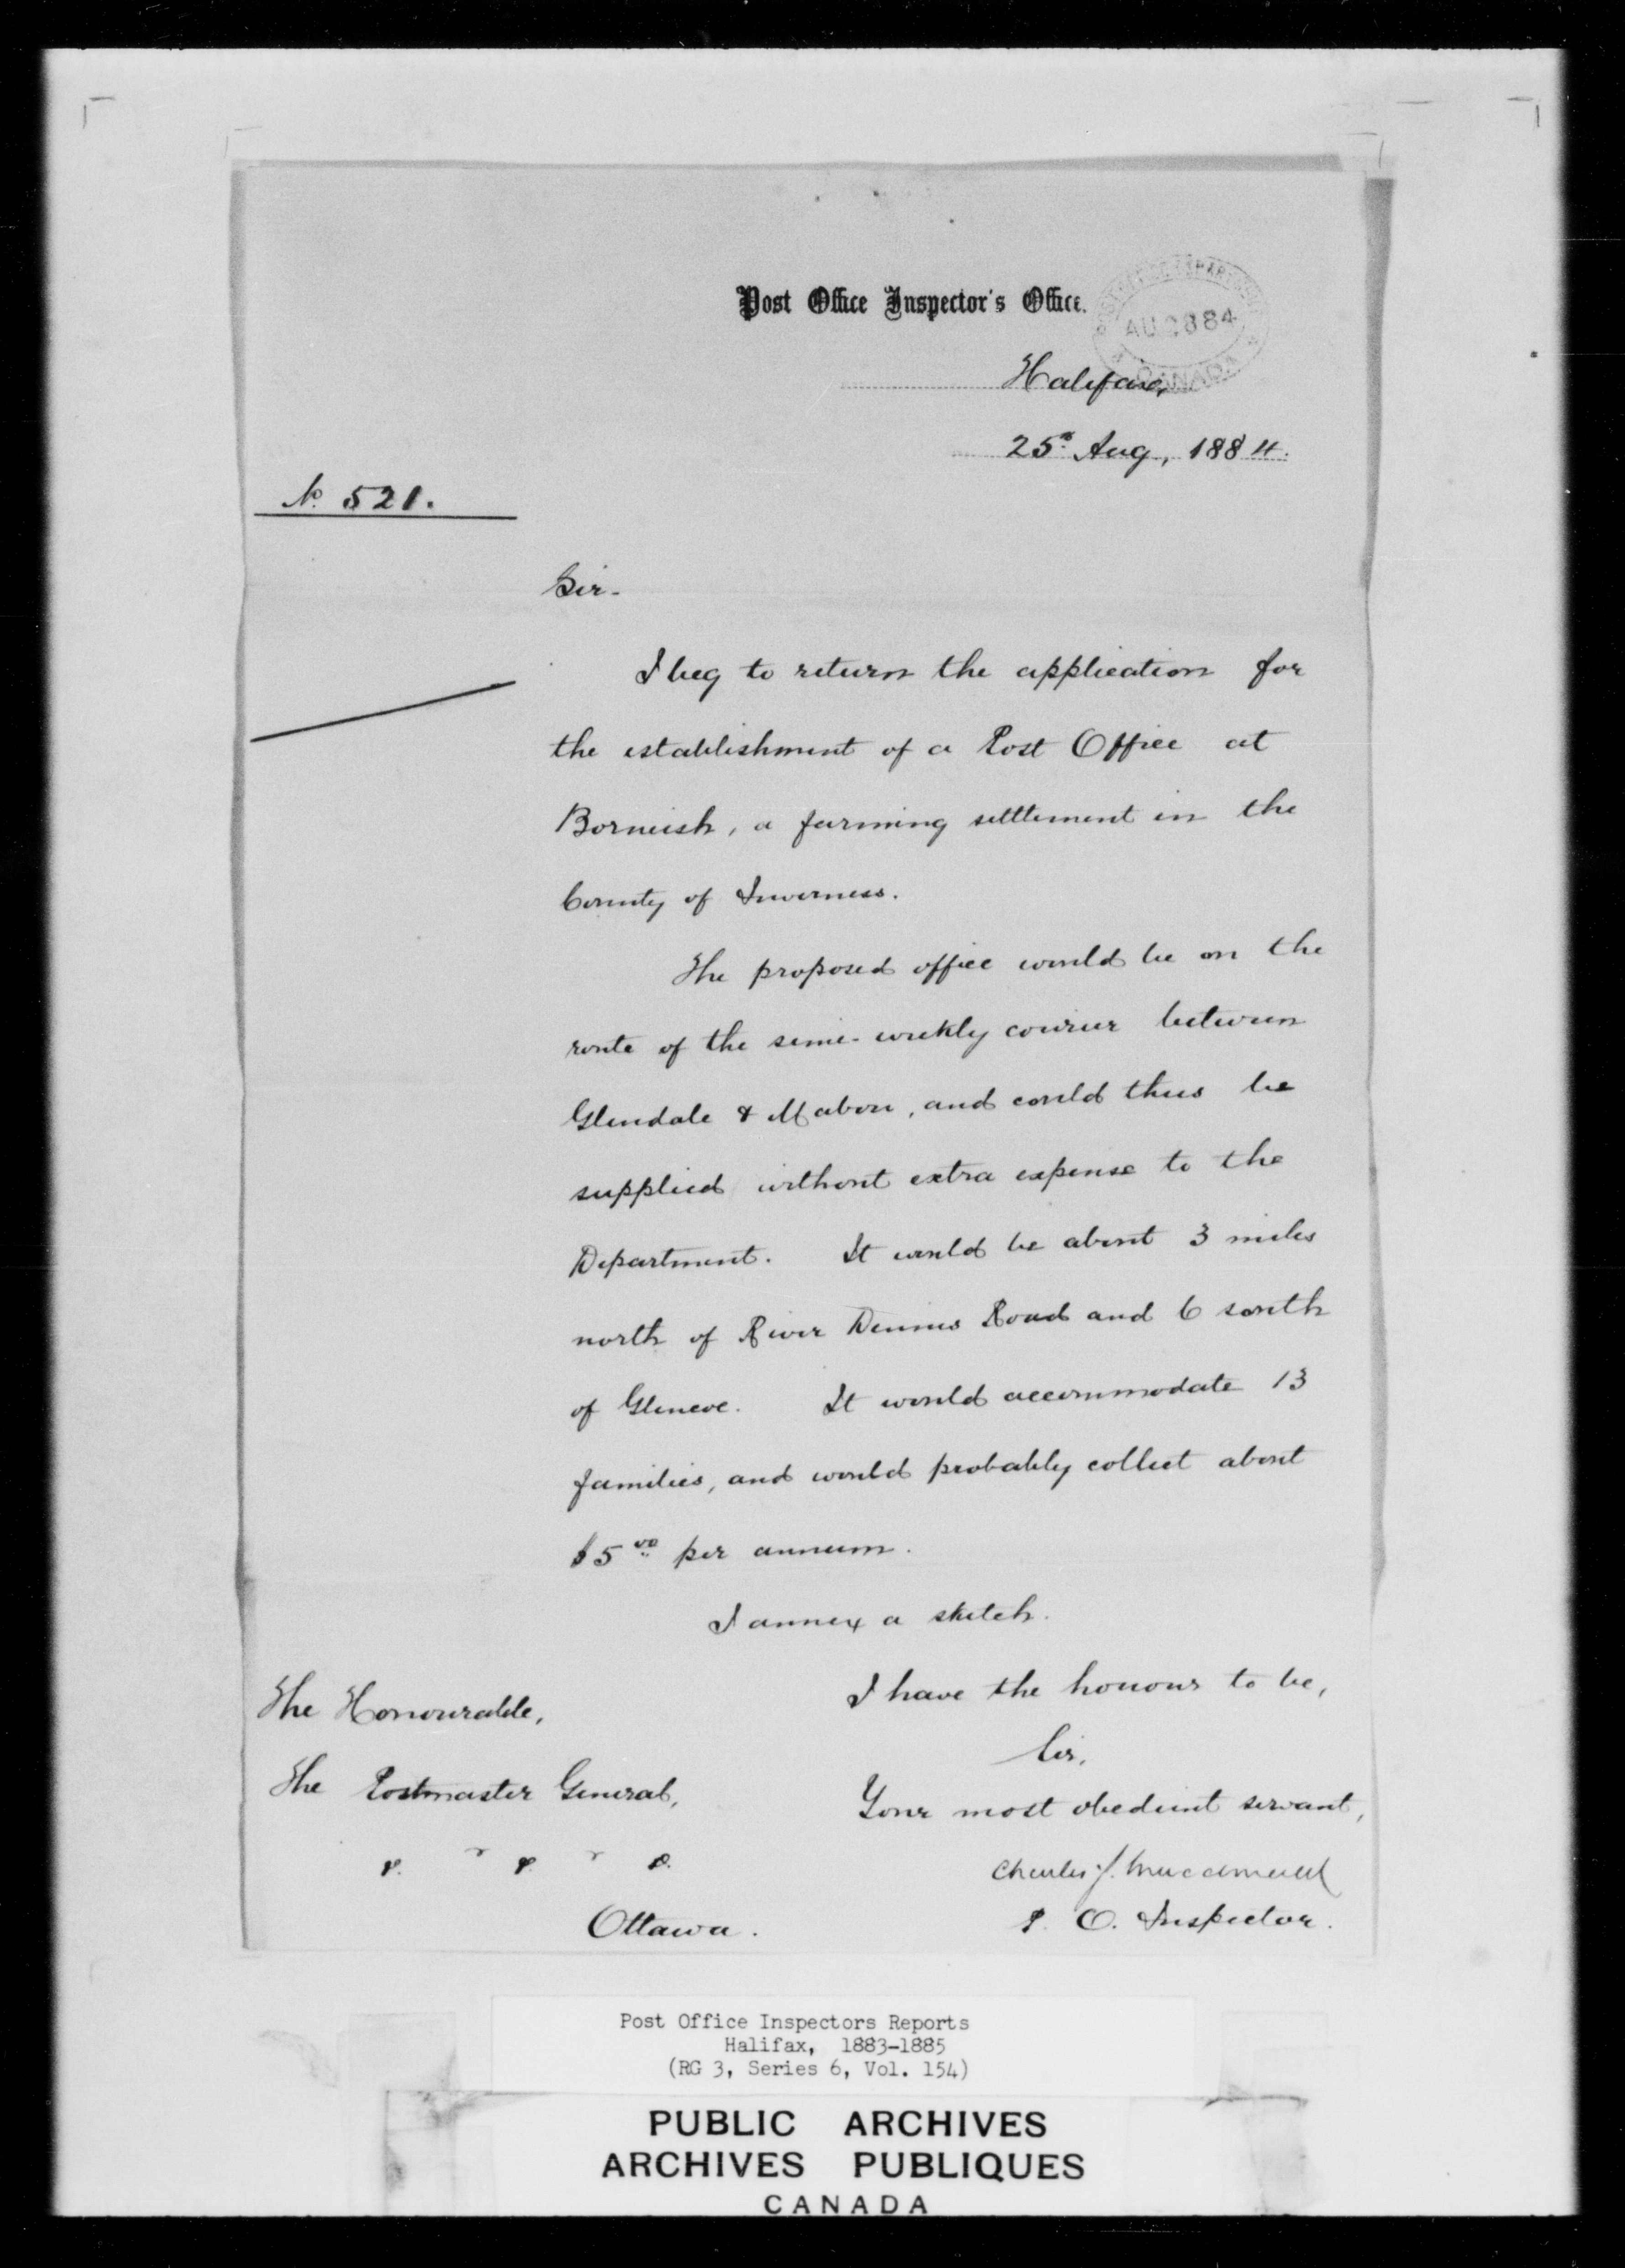 Post Office Inspector's Office.
POST OFFICE DEPARTMENT
AU 28 84
CANADA
Halifax,
25th Aug, 1884.
No. 521.
Sir-
I beg to return the application for
the establishment of a Post Office at
Bornish, a farming settlement in the
County of Inverness.
The proposed office would be on the
route of the semi-weekly courier between
Glendale & Mabou, and could thus be
supplied without extra expense to the
Department. It would be about 3 miles
north of River Dennis Road and 6 south
of Glencoe. It would accommodate 13
families, and would probably collect about
$5.00 per annum.
I annex a sketch.
I have the honour to be,
Sir,
Your most obedient servant,
Charles J. Macdonald
P. O. Inspector.
The Honourable,
The Postmaster General,
&. " &. " &.
Ottawa.
Post Office Inspectors Reports
Halifax, 1883-1885
(RG 3, Series 6, Vol. 154)
PUBLIC ARCHIVES
ARCHIVES PUBLIQUES
CANADA